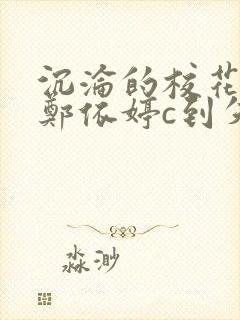 沉淪的校花
鄭依婷c到
淼渺